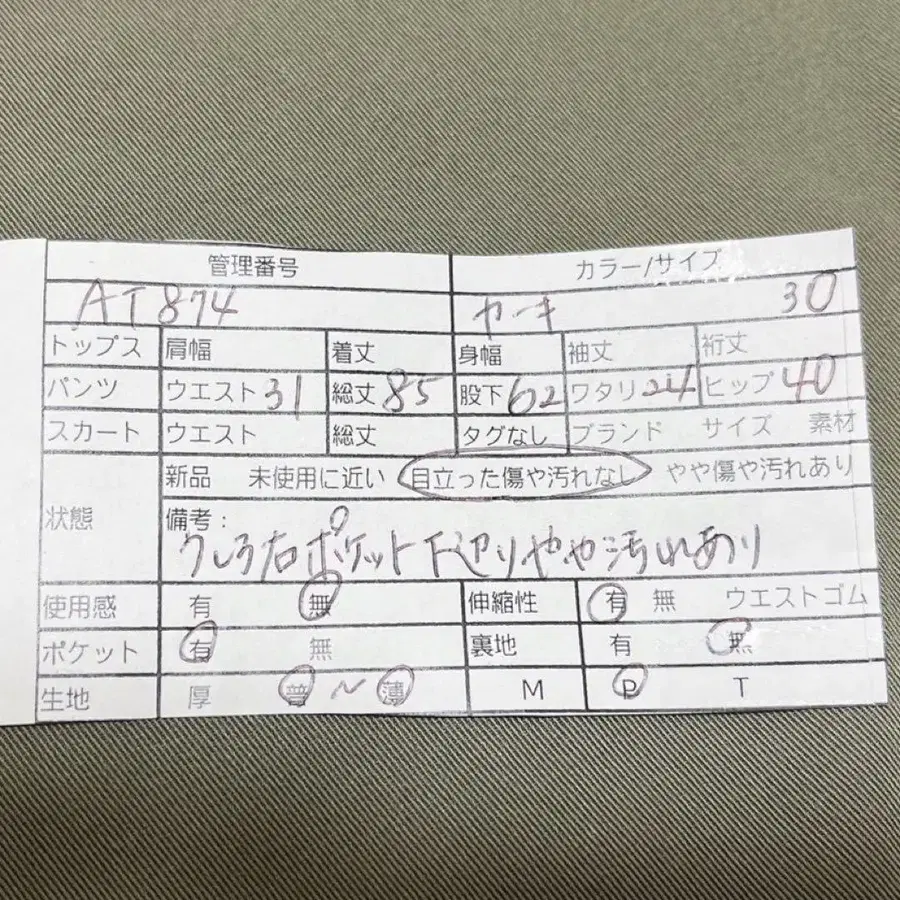 管理番号 カラー/サイズ
AT874 カーキ 30
トップス 肩幅 着丈 身幅 袖丈 裄丈
パンツ ウエスト 31 総丈 85 股下 62 ワタリ 24 ヒップ 40
スカート ウエスト 総丈 タグなし ブランド サイズ 素材
状態 新品 未使用に近い 目立った傷や汚れなし やや傷や汚れあり
備考:
うしろ右ポケット下辺りやや汚れあり
使用感 有 無 伸縮性 有 無 ウエストゴム
ポケット 有 無 裏地 有 無
生地 厚 普 ~ 薄 M P T